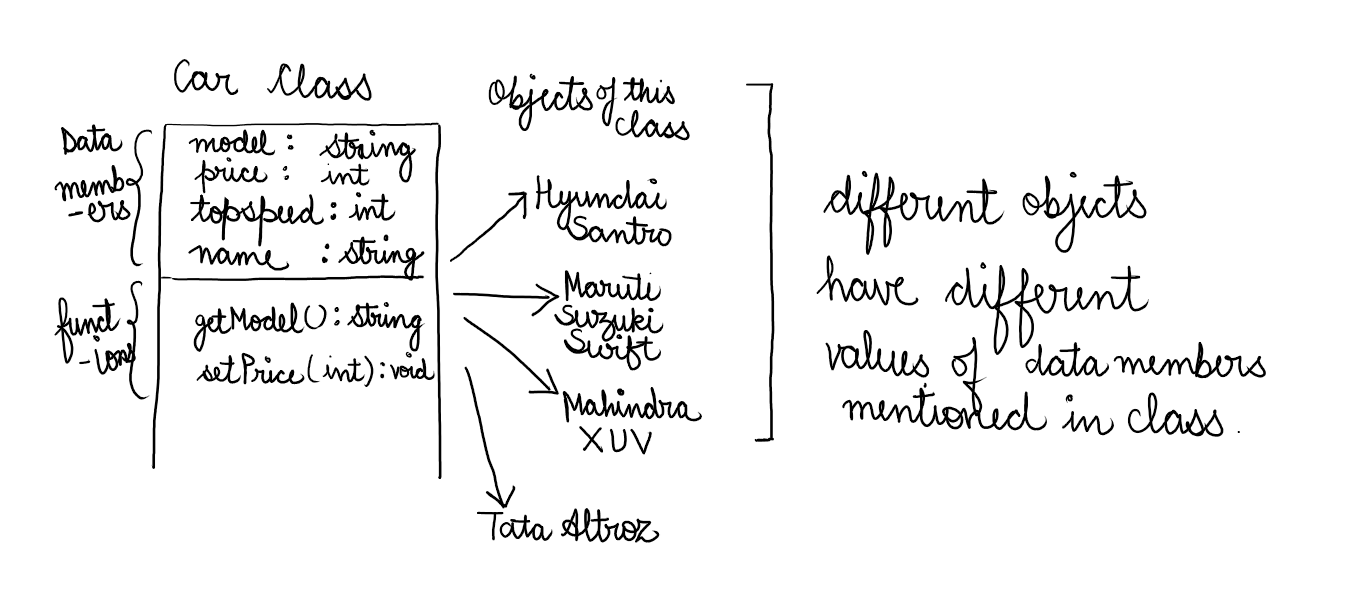 Car Class
Data
memb
-ers
model : string
price : int
topspeed : int
name : string
funct
-ions
getModel() : string
setPrice(int) : void
Objects of this
class
Hyundai
Santro
Maruti
Suzuki
Swift
Mahindra
XUV
Tata Altroz
different objects
have different
values of data members
mentioned in class.